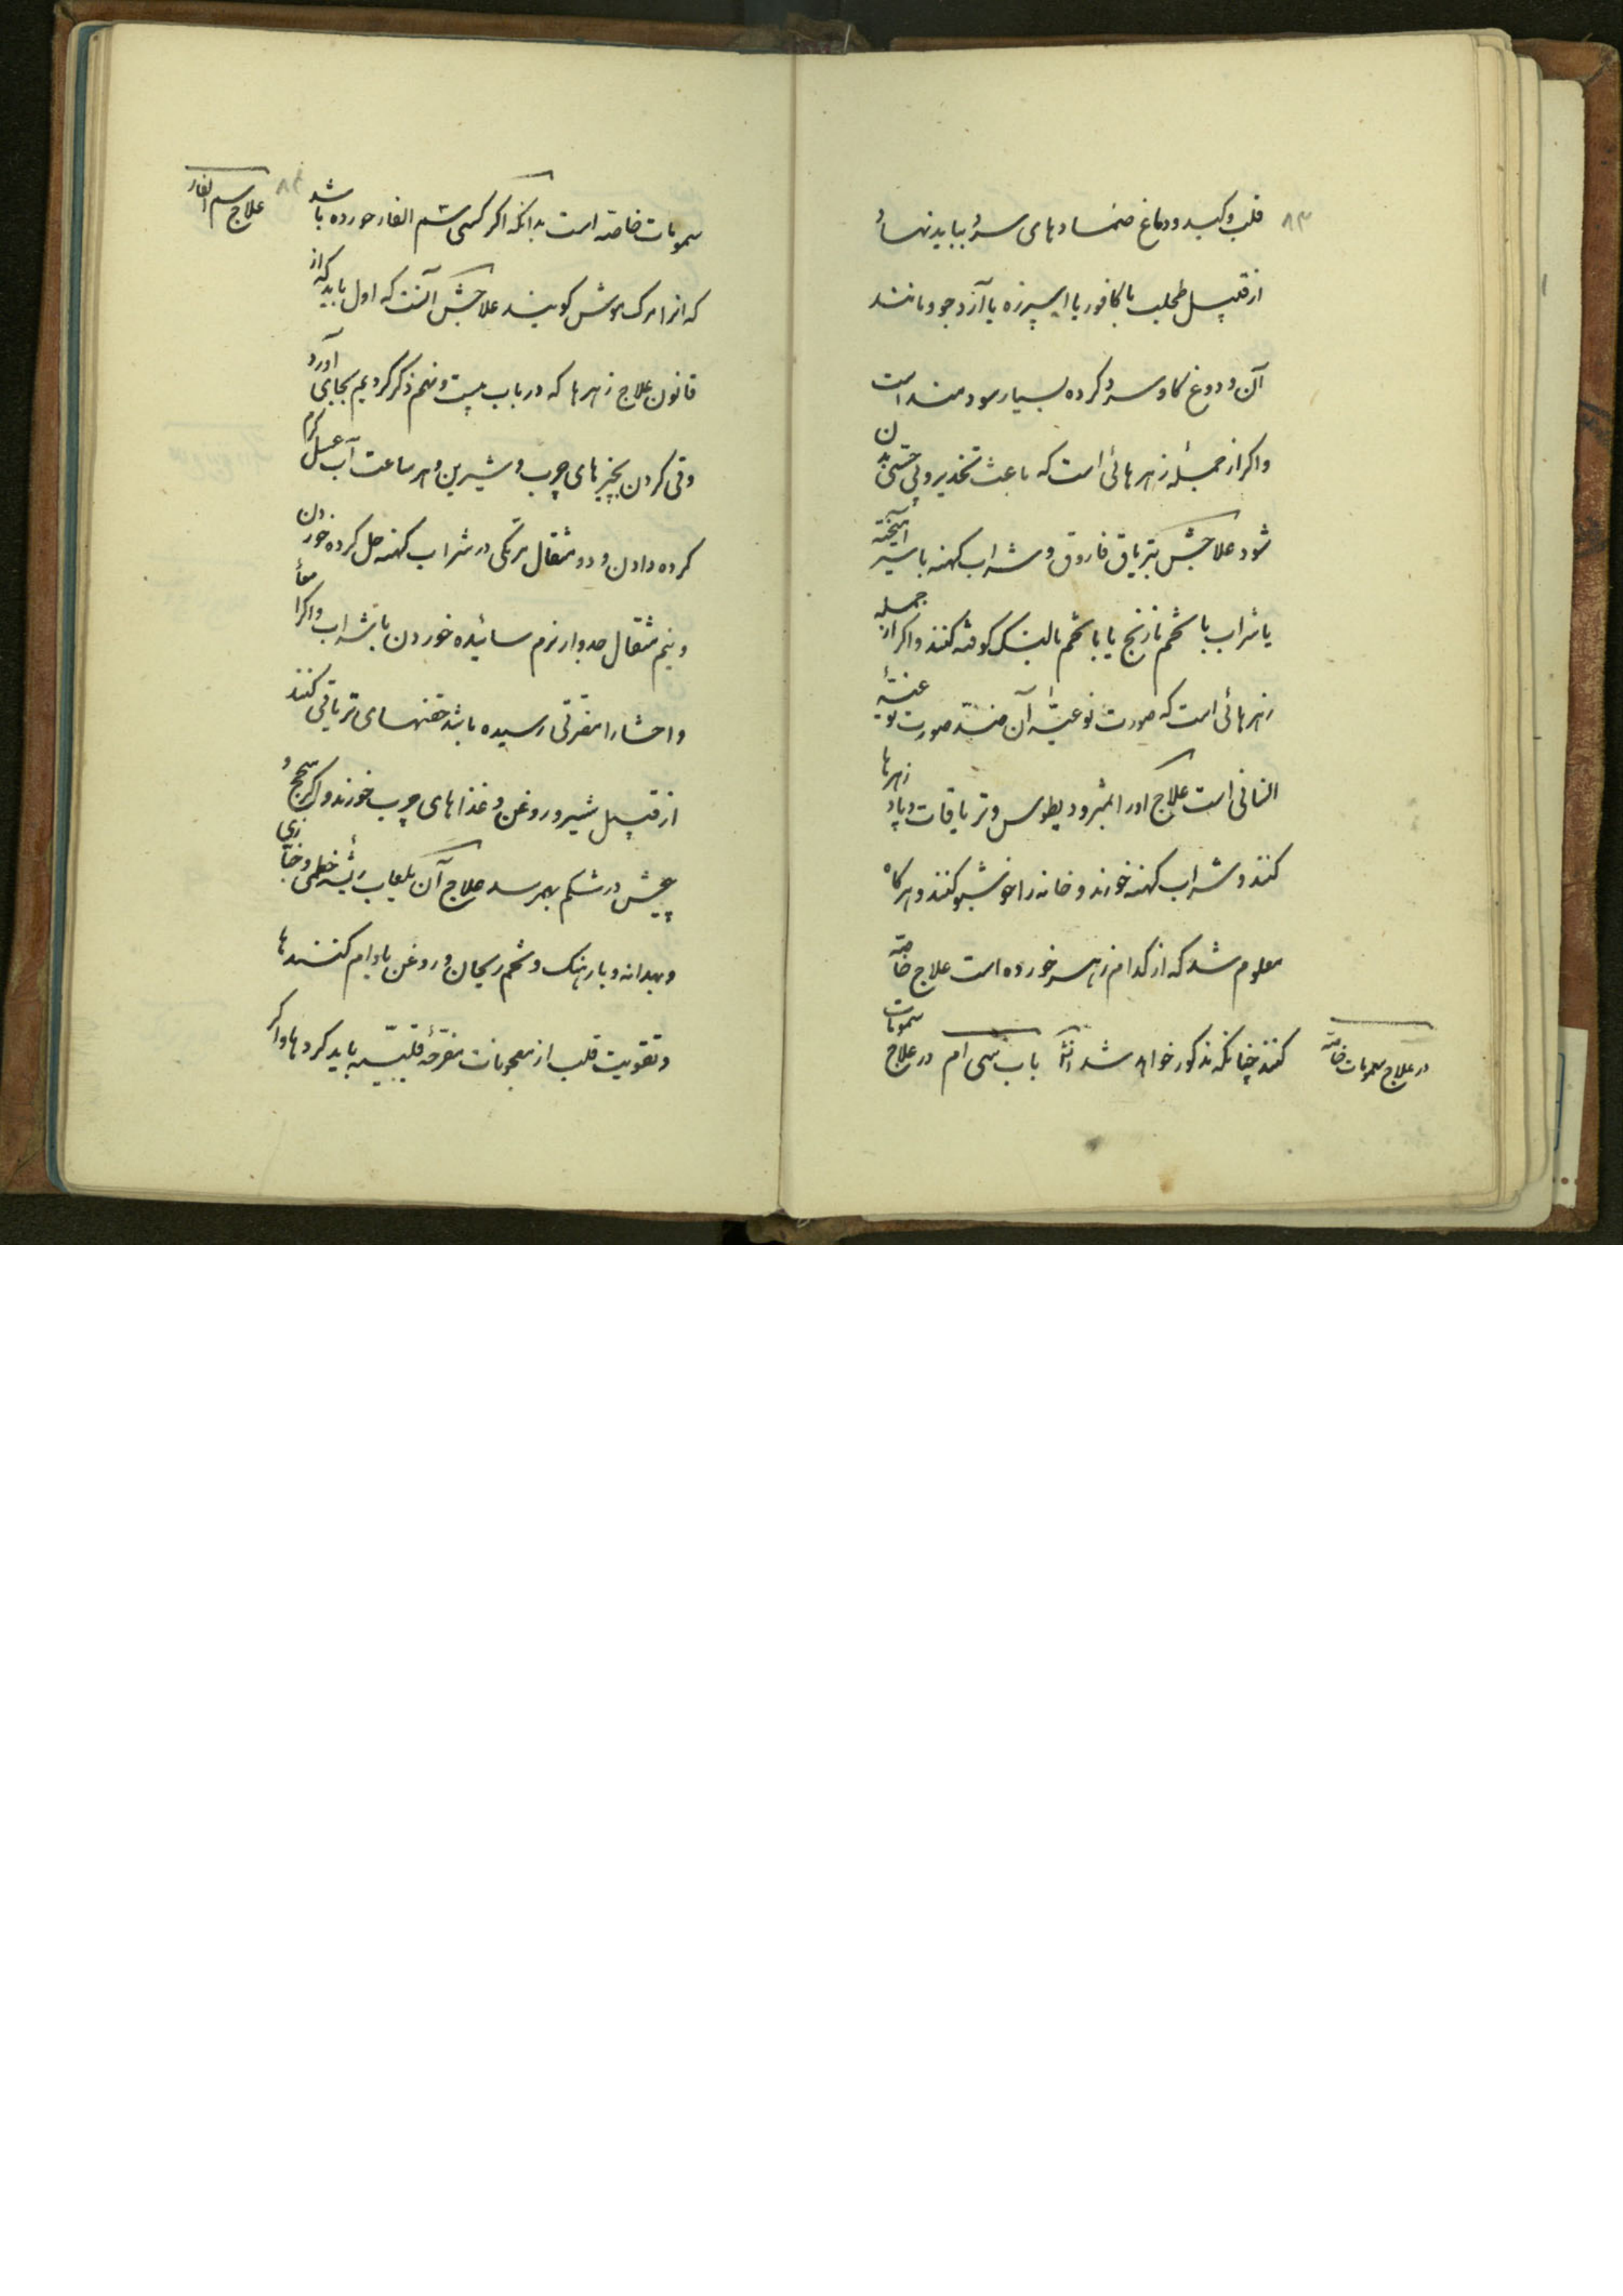 ۸۳
قلب و کبد و دماغ ضمادهای سرد بباید نهاد
از قبیل طحلب با کافور یا اسپرزه با آرد جو و مانند
آن و دوغ کاو سرد کرده بسیار سودمند است
و اکر از جمله زهرهائی است که باعث تخدیر و بی حسی بدن
شود علاجش بتریاق فاروق و شراب کهنه با سیر آمیخته
یا شراب با تخم نارنج یا با تخم بالنک کوفته کنند و اکر از جمله
زهرهائی است که صورت نوعیّهٔ آن ضدّ صورت نوعیّهٔ
انسانی است علاج او را بمثرودیطوس و تریاقات و پادزهرها
کنند و شراب کهنه خورند و خانه را خوشبو کنند و هرکاه
معلوم شد که از کدام زهر خورده است علاج خاصّه
کنند چنانکه مذکور خواهد شد باب سی ام در علاج سمومات
در علاج سمومات خاصّه
علاج سم الفار
سمومات خاصه است بدانکه اکر کسی سم الفار خورده باشد
که انرا مرک موش کویند علاجش آنست که اول باید که از
قانون علاج زهرها که در باب بیست و نهم ذکر کردیم بجای آورد
و قی کردن بچیزهای چرب و شیرین و هر ساعت آب عسل کرم
کرده دادن و دو مثقال در شراب کهنه حل کرده خوردن
و نیم مثقال جدوار نرم سائیده خوردن با شراب و اکر امعأ
و احشا را مضرتی رسیده باشد حقنهای تریاقی کنند
از قبیل شیر و روغن و غذاهای چرب خورند و اکر سحج و
پیچش در شکم بهم رسد علاج آن بلعاب ریشهٔ خطمی و خبّازی
و بهدانه و بارهنک و تخم ریحان و روغن بادام کنند
و تقویت قلب از معجونات مفرّحهٔ قلبیّه باید کرد و اکر